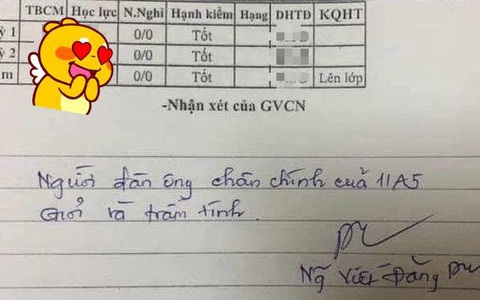 TBCM Học lực N.Nghỉ Hạnh kiểm Hạng DHTĐ KQHT
ỳ 1 0/0 Tốt
ỳ 2 0/0 Tốt
m 0/0 Tốt Lên lớp
-Nhận xét của GVCN
Người đàn ông chân chính của 11A5
Giỏi và trầm tính.
Ng Viết Đăng